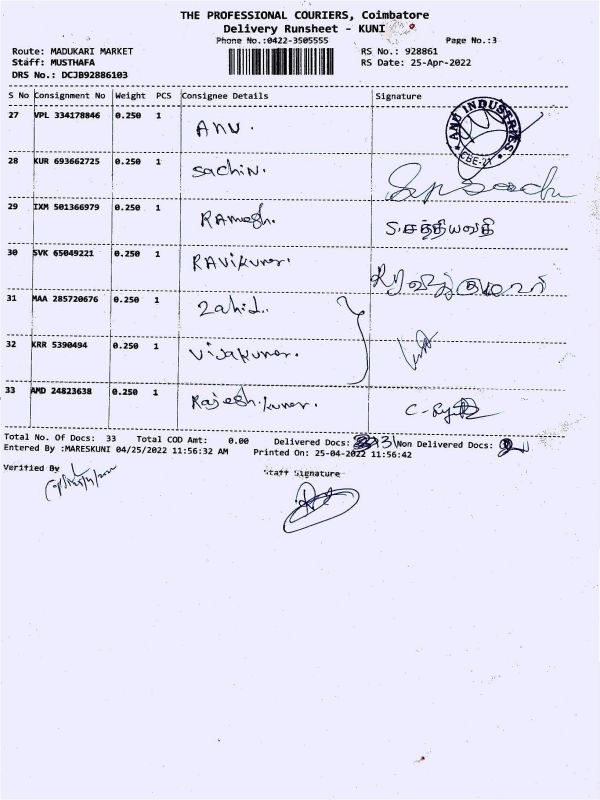 THE PROFESSIONAL COURIERS, Coimbatore
Delivery Runsheet - KUNI
Phone No.:0422-3505555 Page No.:3
Route: MADUKARI MARKET RS No.: 928861
Staff: MUSTHAFA RS Date: 25-Apr-2022
DRS No.: DCJB92886103
S No Consignment No Weight PCS Consignee Details Signature
27 VPL 334178846 0.250 1 Anu. AND INDUSTRIES
28 KUR 693662725 0.250 1 Sachin.
29 IXM 501366979 0.250 1 Ramesh. S.சத்தியவதி
30 SVK 65049221 0.250 1 Ravikumar.
31 MAA 285720676 0.250 1 Zahid.
32 KRR 5390494 0.250 1 Vijakumar.
33 AMD 24823638 0.250 1 Rajesh.kumar.
Total No. Of Docs: 33 Total COD Amt: 0.00 Delivered Docs: 31 Non Delivered Docs:
Entered By :MARESKUNI 04/25/2022 11:56:32 AM Printed On: 25-04-2022 11:56:42
Verified By Staff Signature